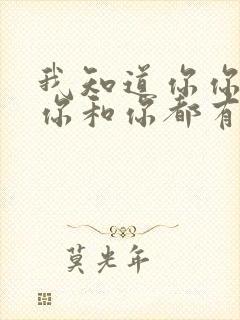 我知道你你
你和你都有
莫光年